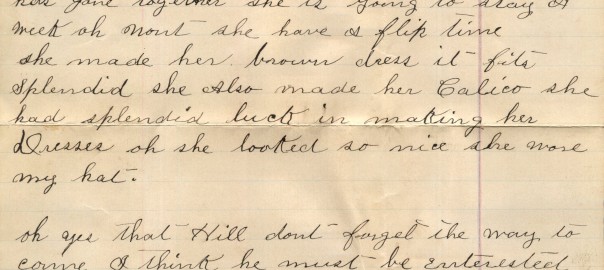 has gone together she is going to stay a
week oh wont she have a flip time
she made her brown dress it fits
splendid she also made her Calico she
had splendid luck in making her
Dresses oh she looked so nice she wore
my hat.
oh yes that Hill dont forget the way to
come I think he must be enterested